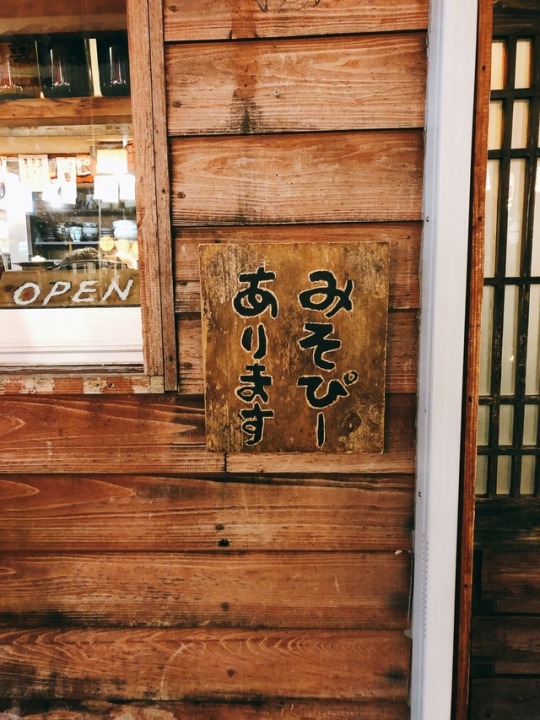 みそぴー
あります
OPEN